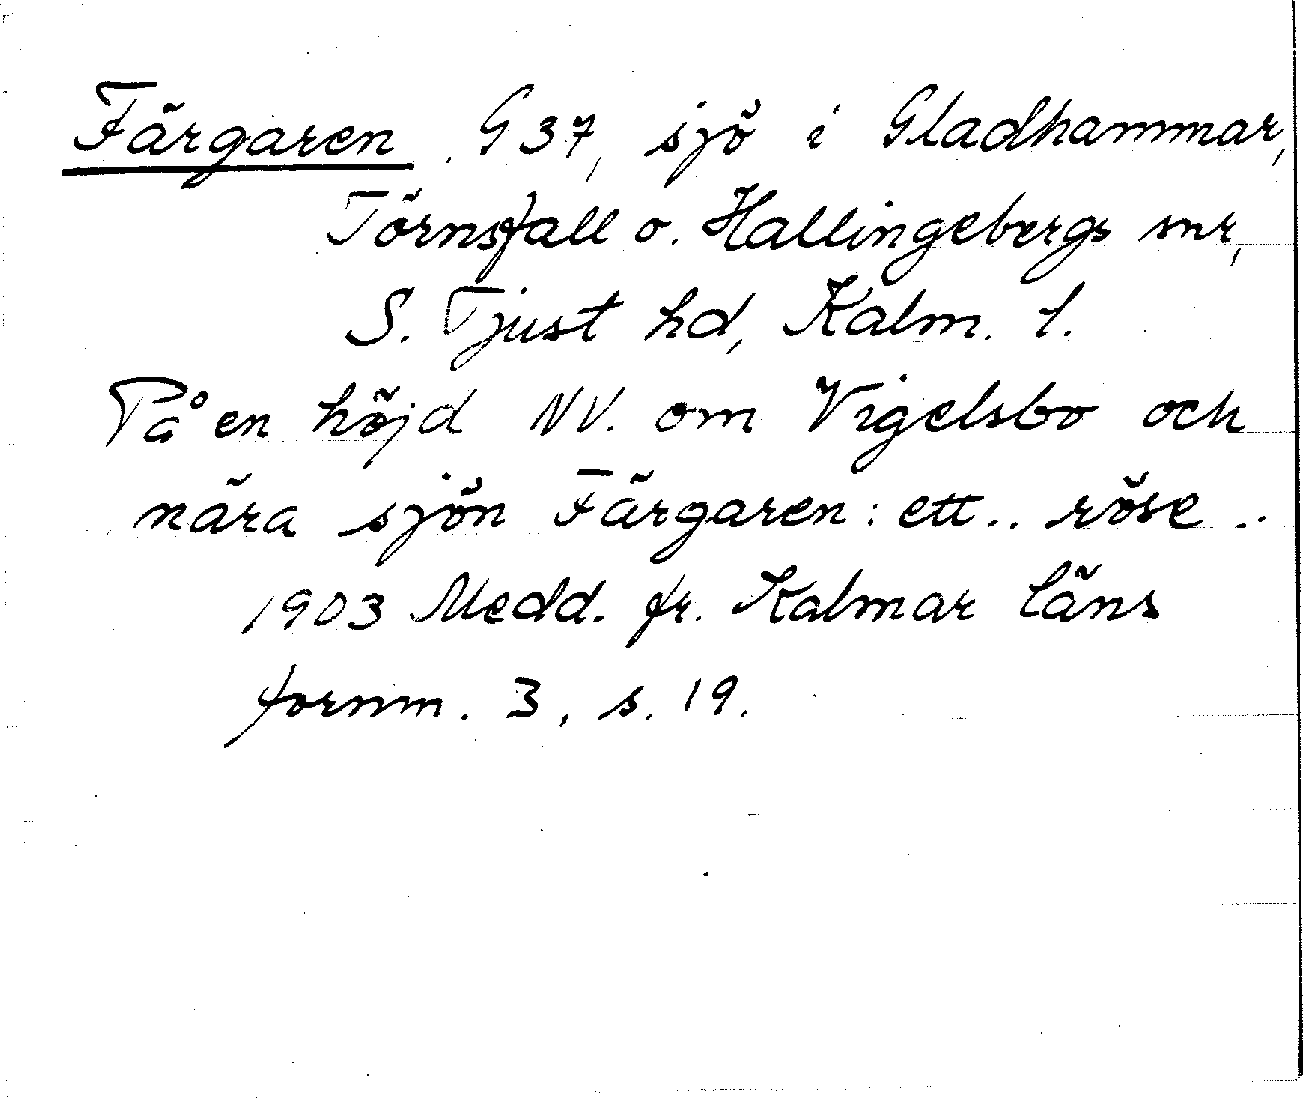 Färgaren. G 37, sjö i Gladhammar,
Törnsfall o. Hallingebergs snr,
S. Tjust hd, Kalm. l.
På en höjd NV. om Vigelsbo och
nära sjön Färgaren: ett .. röse ..
1903 Medd. fr. Kalmar läns
fornm. 3, s. 19.